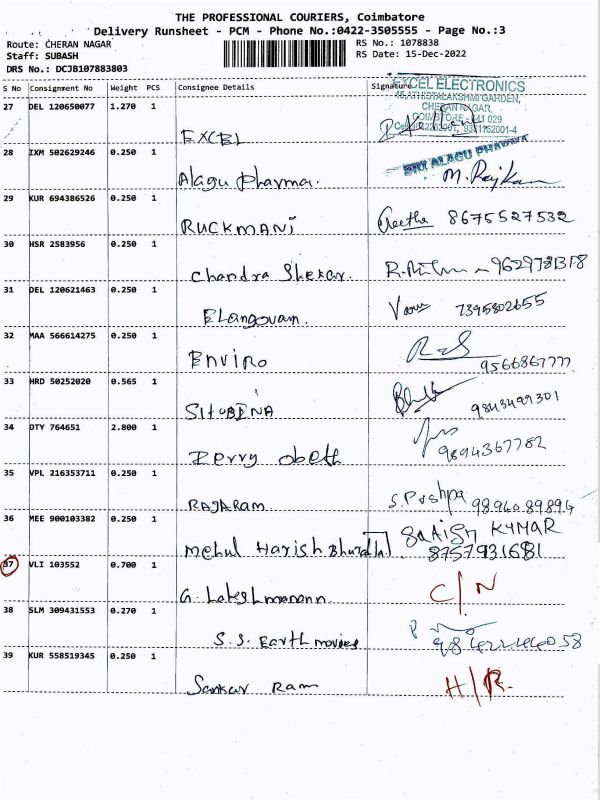 THE PROFESSIONAL COURIERS, Coimbatore
Delivery Runsheet - PCM - Phone No.:0422-3505555 - Page No.:3
Route: CHERAN NAGAR RS No.: 1078838
Staff: SUBASH RS Date: 15-Dec-2022
DRS No.: DCJB107883803
S No Consignment No Weight PCS Consignee Details Signature
EXCEL ELECTRONICS
CHERAN NAGAR,
27 DEL 120650077 1.270 1
EXCEL
28 IXM 502629246 0.250 1
SRI ALAGU PHARMA
Alagu Pharma. M. Rajkam
29 KUR 694386526 0.250 1
RUCKMANI Geetha 8675527532
30 HSR 2583956 0.250 1
Chandra Shekar.
31 DEL 120621463 0.250 1
Elangovan. 7395802655
32 MAA 566614275 0.250 1
Enviro
9566867777
33 HRD 50252020 0.565 1
9843499301
34 DTY 764651 2.800 1
9894367782
Perry obeth
35 VPL 216353711 0.250 1
RAJARAM S. Pushpa 98960.89894
36 MEE 900103382 0.250 1
KUMAR
Mehul Harish 8757931681
37 VLI 103552 0.700 1
C/N
38 SLM 309431553 0.270 1
S.S. Earth movies
39 KUR 558519345 0.250 1
Sankar Ram H/R.